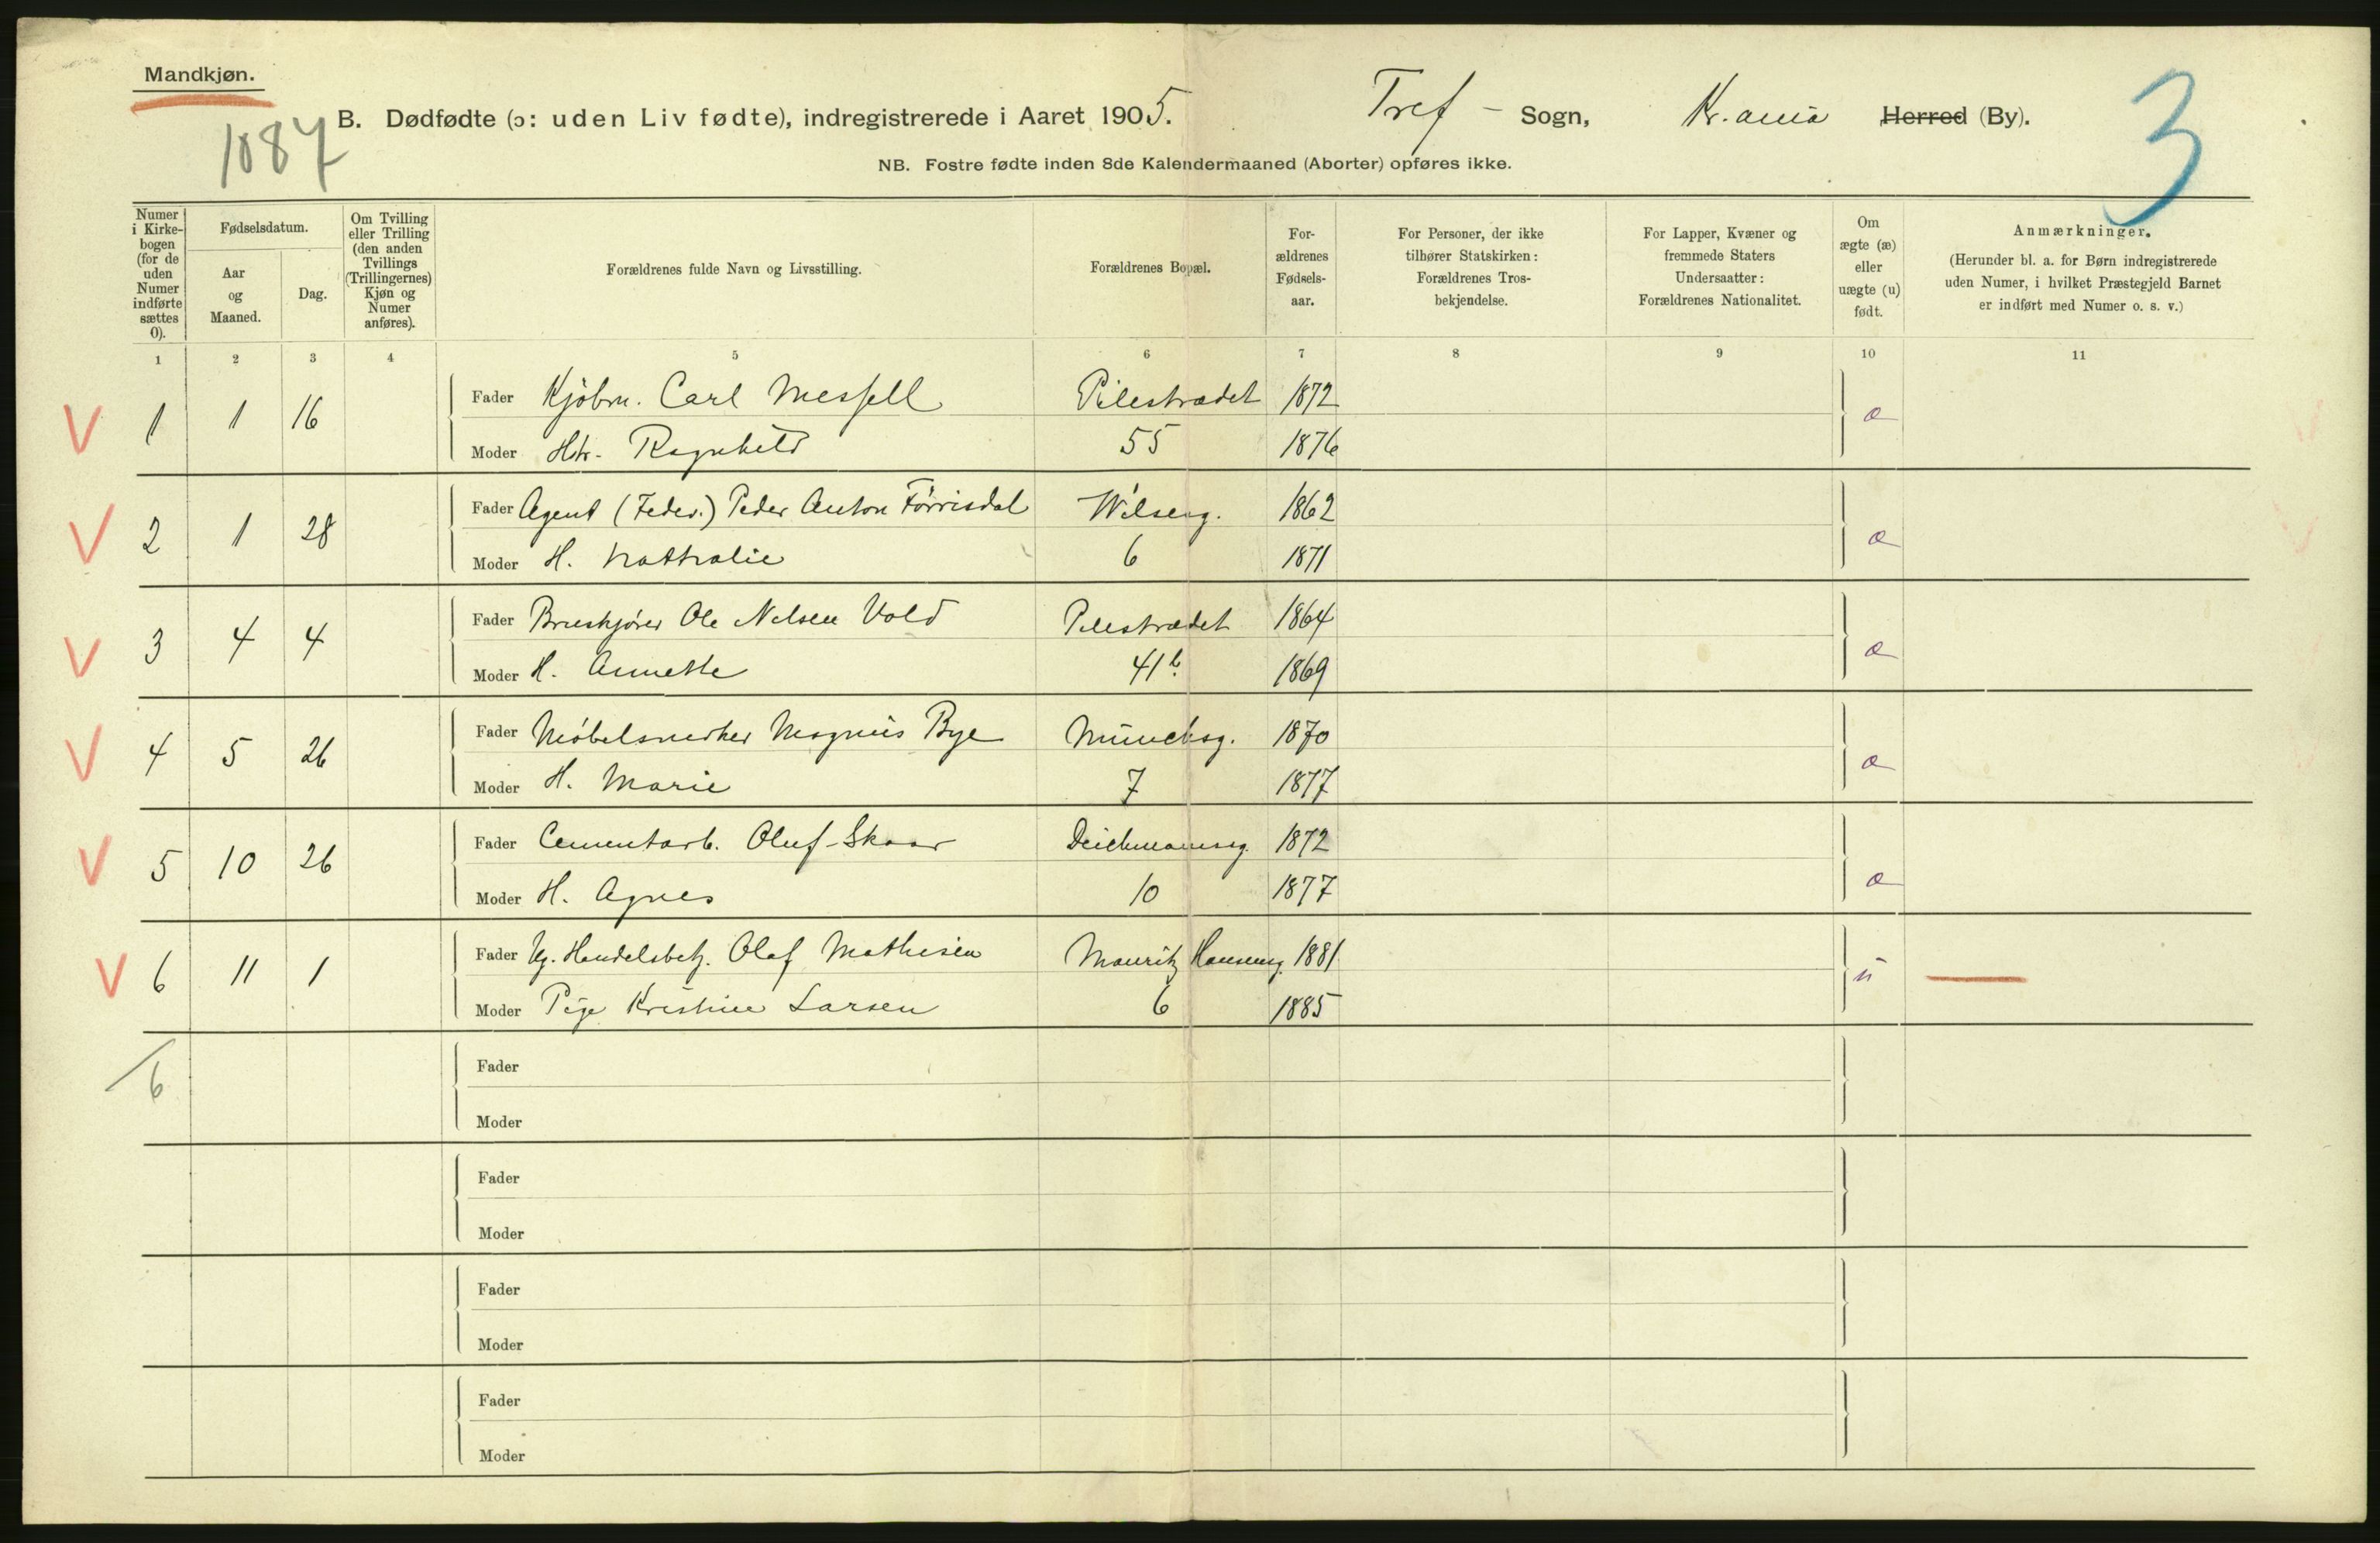 Mandkjøn.
1087
B. Dødfødte (ɔ: uden Liv fødte), indregistrerede i Aaret 1905. Tref - Sogn, Kr.ania Herred (By). 3
NB. Fostre fødte inden 8de Kalendermaaned (Aborter) opføres ikke.
Numer i Kirkebogen (for de uden Numer indførte sættes 0).
Fødselsdatum.
Aar og Maaned.
Dag.
Om Tvilling eller Trilling (den anden Tvillings (Trillingernes) Kjøn og Numer anføres).
Forældrenes fulde Navn og Livsstilling.
Forældrenes Bopæl.
Forældrenes Fødselsaar.
For Personer, der ikke tilhører Statskirken: Forældrenes Trosbekjendelse.
For Lapper, Kvæner og fremmede Staters Undersaatter: Forældrenes Nationalitet.
Om ægte (æ) eller uægte (u) født.
Anmærkninger.
(Herunder bl. a. for Børn indregistrerede uden Numer, i hvilket Præstegjeld Barnet er indført med Numer o. s. v.)
1 2 3 4 5 6 7 8 9 10 11
V 1 1 16 Fader Kjøbm. Carl Messell Pilestrædet 1872 æ
Moder Htr. Ragnhild 55 1876
V 2 1 28 Fader Agent (Feder.) Peder Anton Førrisdal Wilseng. 1862 æ
Moder H. Nathalie 6 1871
V 3 4 4 Fader Bruskjører Ole Nilsen Vold Pilestrædet 1864 æ
Moder H. Annette 41b. 1869
V 4 5 26 Fader Møbelsnedker Magnus Bye Munchsg. 1870 æ
Moder H. Marie 7 1877
V 5 10 26 Fader Cementarb. Oluf Skaar Deichmannsg. 1872 æ
Moder H. Agnes 10 1877
V 6 11 1 Fader Ug. Handelsbetj. Olaf Mathisen Mauritz Hansensg. 1881 u
Moder Pige Kristine Larsen 6 1885
6 Fader
Moder
Fader
Moder
Fader
Moder
Fader
Moder